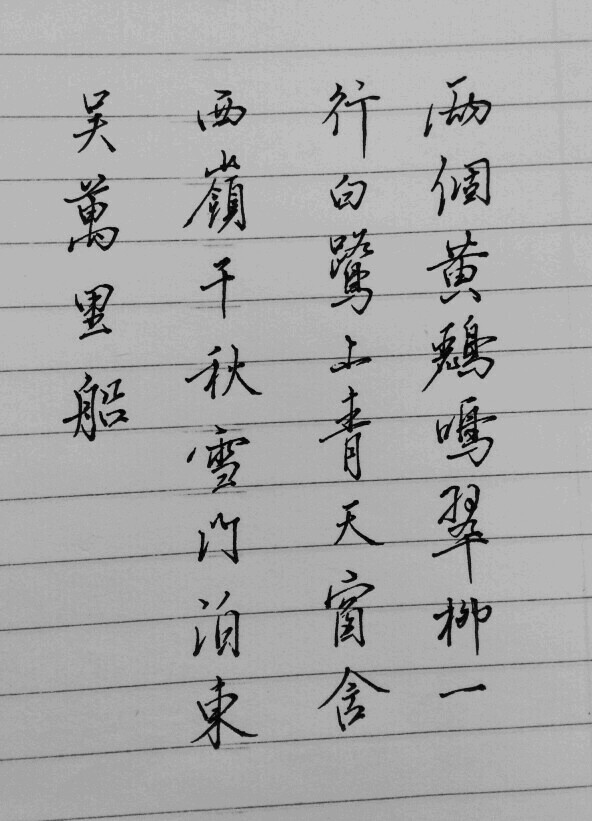 兩個黃鸝鳴翠柳一
行白鷺上青天窗含
西嶺千秋雪门泊東
吴萬里船